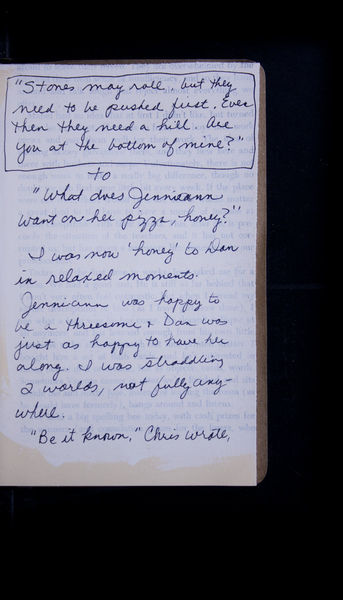 "Stones may roll, but they
need to be pushed first. Even
then they need a hill. Are
you at the bottom of mine?"
to
"What does Jenniann
want on her pizza, honey?"
I was now 'honey' to Dan
in relaxed moments.
Jenniann was happy to
be a threesome & Dan was
just as happy to have her
along. I was straddling
2 worlds, not fully any-
where.
"Be it known," Chris wrote,